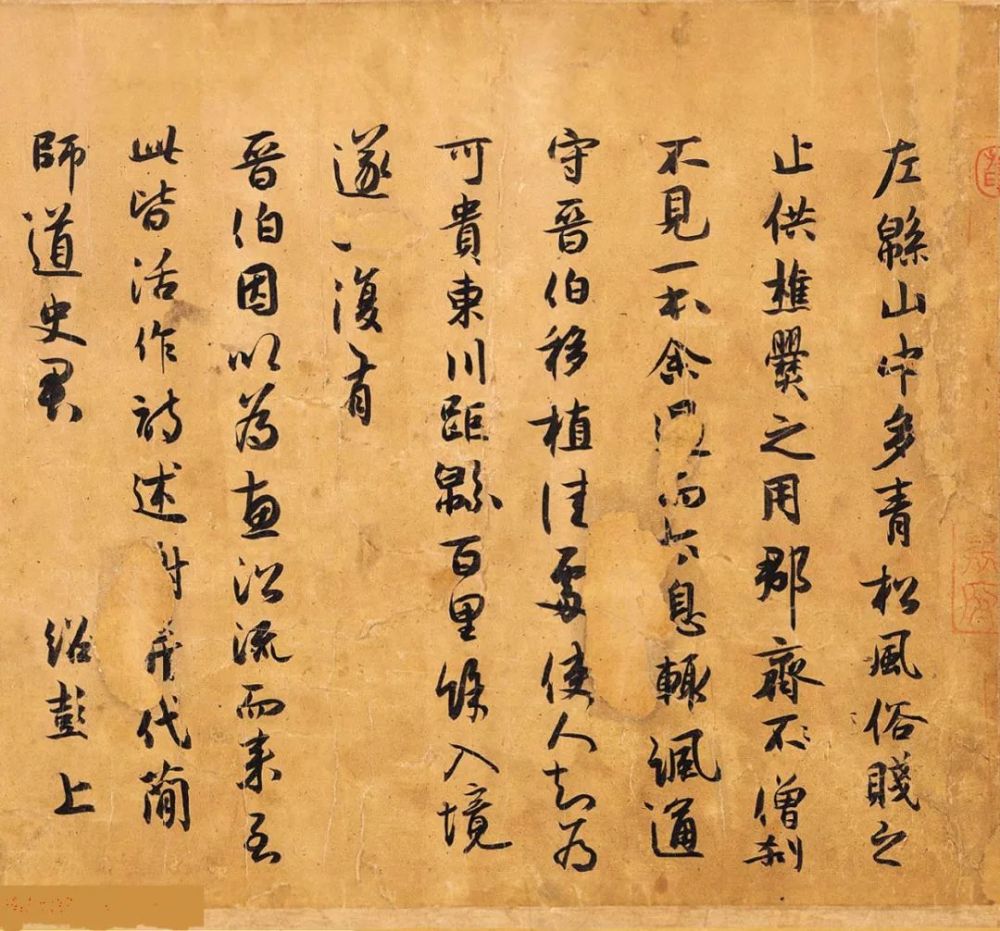 左緜山中多青松風俗賤之
止供樵爨之用郡齋不僧刹
不見一本余過而太息輒諷通
守晉伯移植佳處使人知為
可貴東川距緜百里餘入境
遂復有
晉伯因以為惠沿流而來至
此皆活作詩述并代簡
師道史君 紹彭上